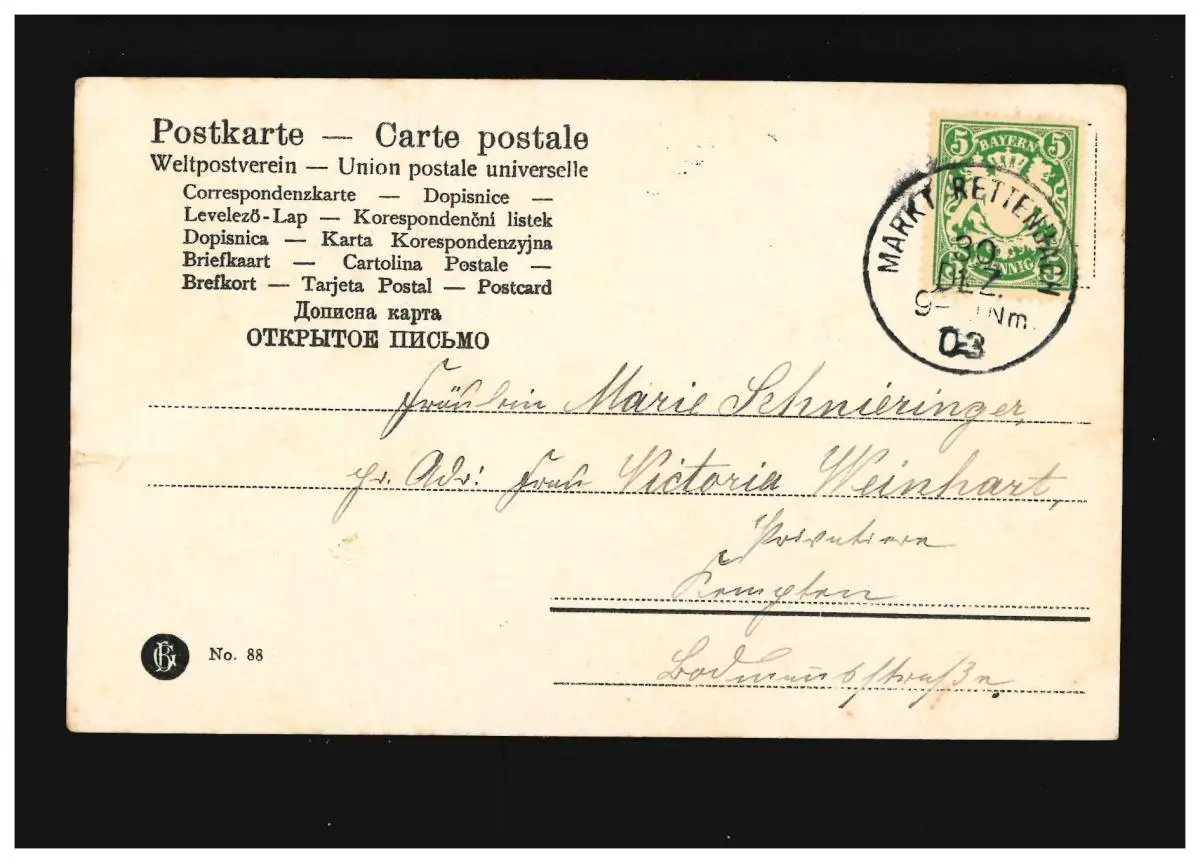 Postkarte — Carte postale
Weltpostverein — Union postale universelle
Correspondenzkarte — Dopisnice —
Levelező-Lap — Korespondenční listek
Dopisnica — Karta Korespondenzyjna
Briefkaart — Cartolina Postale —
Brefkort — Tarjeta Postal — Postcard
Дописна карта
ОТКРЫТОЕ ПИСЬМО
5 BAYERN 5
PFENNIG
MARKT RETTENBACH
30
DEZ.
Nm.
03
Fräulein Marie Schnieringer,
pr. Adr: Frau Victoria Weinhart,
Privatiere
Kempten
Bodmannstraße
No. 88